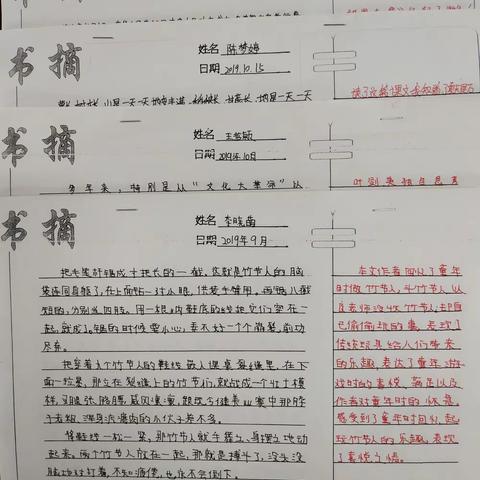 姓名 陈梦婷
书摘
日期 2019.10.15
姓名 王梦颖
书摘
日期 2019年10月
多年来,特别是从“文化大革命”以
书摘
姓名 李晓菡
日期 2019年9月
把毛笔杆锯成寸把长的一截,这就是竹节人的脑
袋连同身躯了,在上面钻一对小眼,供装手臂用。再锯八截
短的,分别当四肢。用一根纳鞋底的线把它们穿在一
起,就成了。锯的时候要小心,弄不好一个个崩裂,前功
尽弃。
把穿着九个竹节人的鞋线嵌入课桌裂缝里,在下
面一拉紧,那立在裂缝上的竹节们,就站成一个壮士模
样,叉腿张胳膊,威风凛凛,跟现今健美比赛中那脖
子老粗、浑身疙瘩肉的小伙子差不多。
将鞋线一松一紧,那竹节人就手舞之、身摆之地动
起来。两个竹节人放在一起,那就是搏斗了,没头没
脑地对打着,不知疲倦,也永不会倒下。
本文作者回忆了童年
时做竹节人,斗竹节人,以
及老师没收竹节人,却自
己偷偷玩的事,表现了
传统玩具给人们带来
的乐趣,表达了童年游
戏时的喜悦、满足以及
作者对童年时的怀恋。
感受到了童年时同小伙
玩竹节人的乐趣,表现
了喜悦之情。